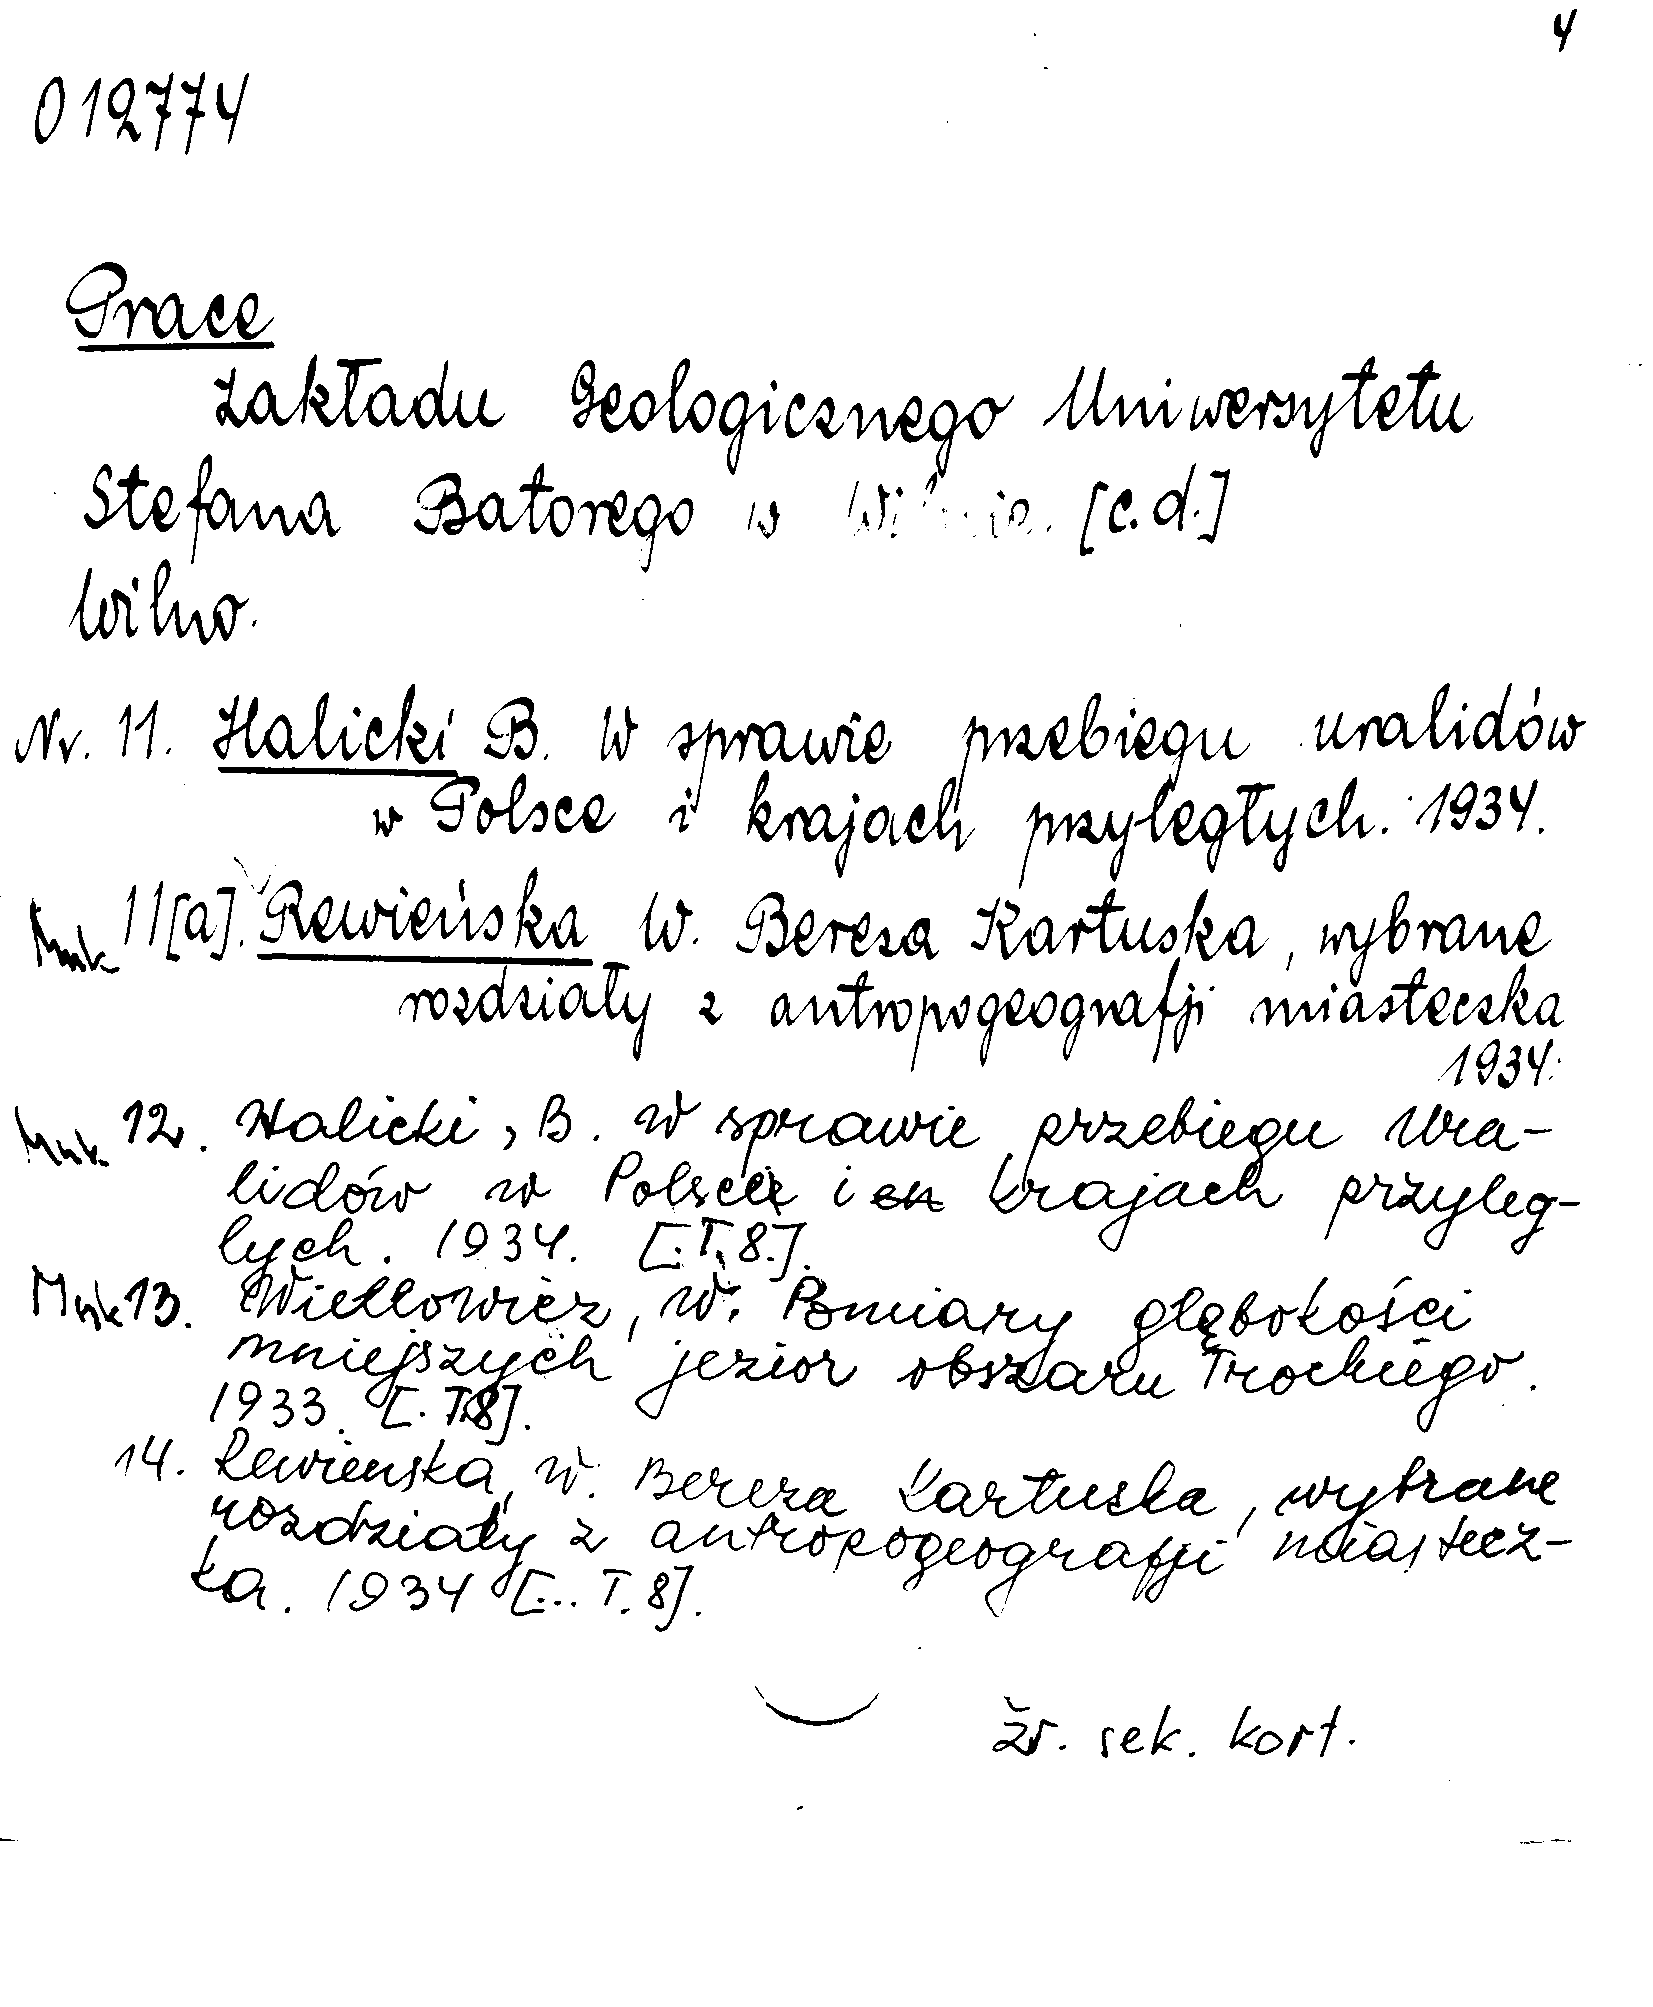 4
012774
Prace
Zakładu Geologicznego Uniwersytetu
Stefana Batorego w Wilnie. [c.d.]
Wilno.
Nr. 11. Halicki B. W sprawie przebiegu uralidów
w Polsce i krajach przyległych. 1934.
11[a]. Rewieńska W. Bereza Kartuska, wybrane
rozdziały z antropogeografji miasteczka
1934.
12. Halicki, B. W sprawie przebiegu Ura-
lidów w Polsce i krajach przyleg-
łych. 1934. [.T.8.].
13. W. Pomiary głębokości
mniejszych jezior obszaru Trockiego.
1933. [. T.8].
14. Rewienska, W. Bereza Kartuska, wybrane
rozdziały z antropogeografji miastecz-
ka. 1934 [... T. 8].
Źr. sek. kart.